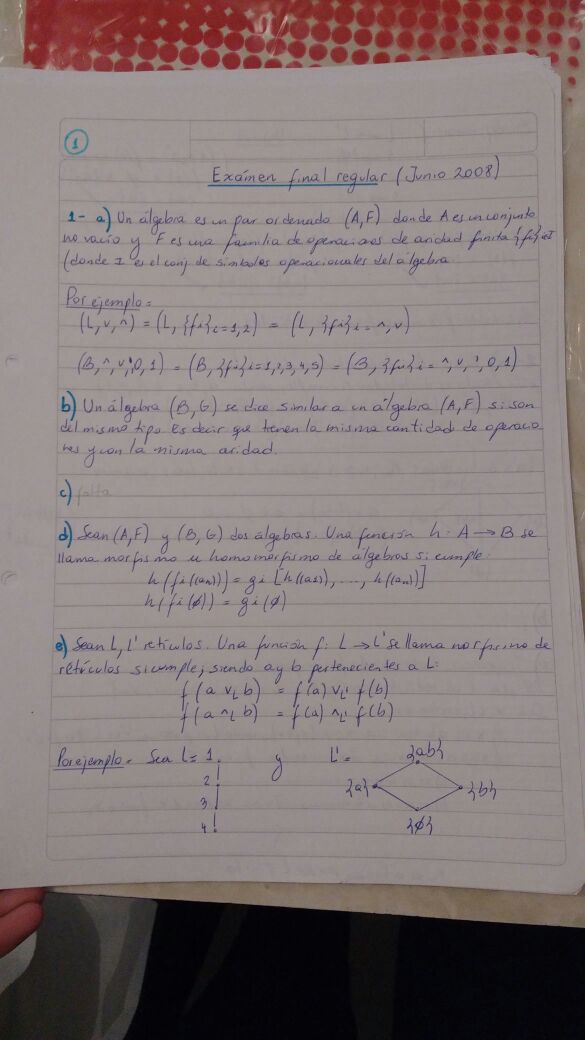 1
Exámen final regular (Junio 2008)
1- a) Un álgebra es un par ordenado (A,F) donde A es un conjunto
no vacío y F es una familia de operaciones de aridad finita {fi}i∈I
(donde I es el conj de símbolos operacionales del álgebra.
Por ejemplo:
(L, v, ^) = (L, {fi}i=1,2) = (L, {fi}i=^,v)
(B, ^, v, ', 0, 1) = (B, {fi}i=1,2,3,4,5) = (B, {fi}i=^,v,',0,1)
b) Un álgebra (B, G) se dice similar a un álgebra (A,F) si son
del mismo tipo. Es decir que tienen la misma cantidad de operacio
nes y con la misma aridad.
c) falta
d) Sean (A,F) y (B, G) dos álgebras. Una función h: A → B se
llama morfismo u homomorfismo de álgebras si cumple:
h(fi((an)) = gi [h((a1)), ..., h((an)]
h(fi(ø)) = gi(ø)
e) Sean L, L' retículos. Una función f: L → L' se llama morfismo de
retículos si cumple; siendo a y b pertenecientes a L:
f(a vL b) = f(a) vL' f(b)
f(a ^L b) = f(a) ^L' f(b)
Por ejemplo: Sea L = 1 y L' = {ab}
2 {a} {b}
3
4 {ø}